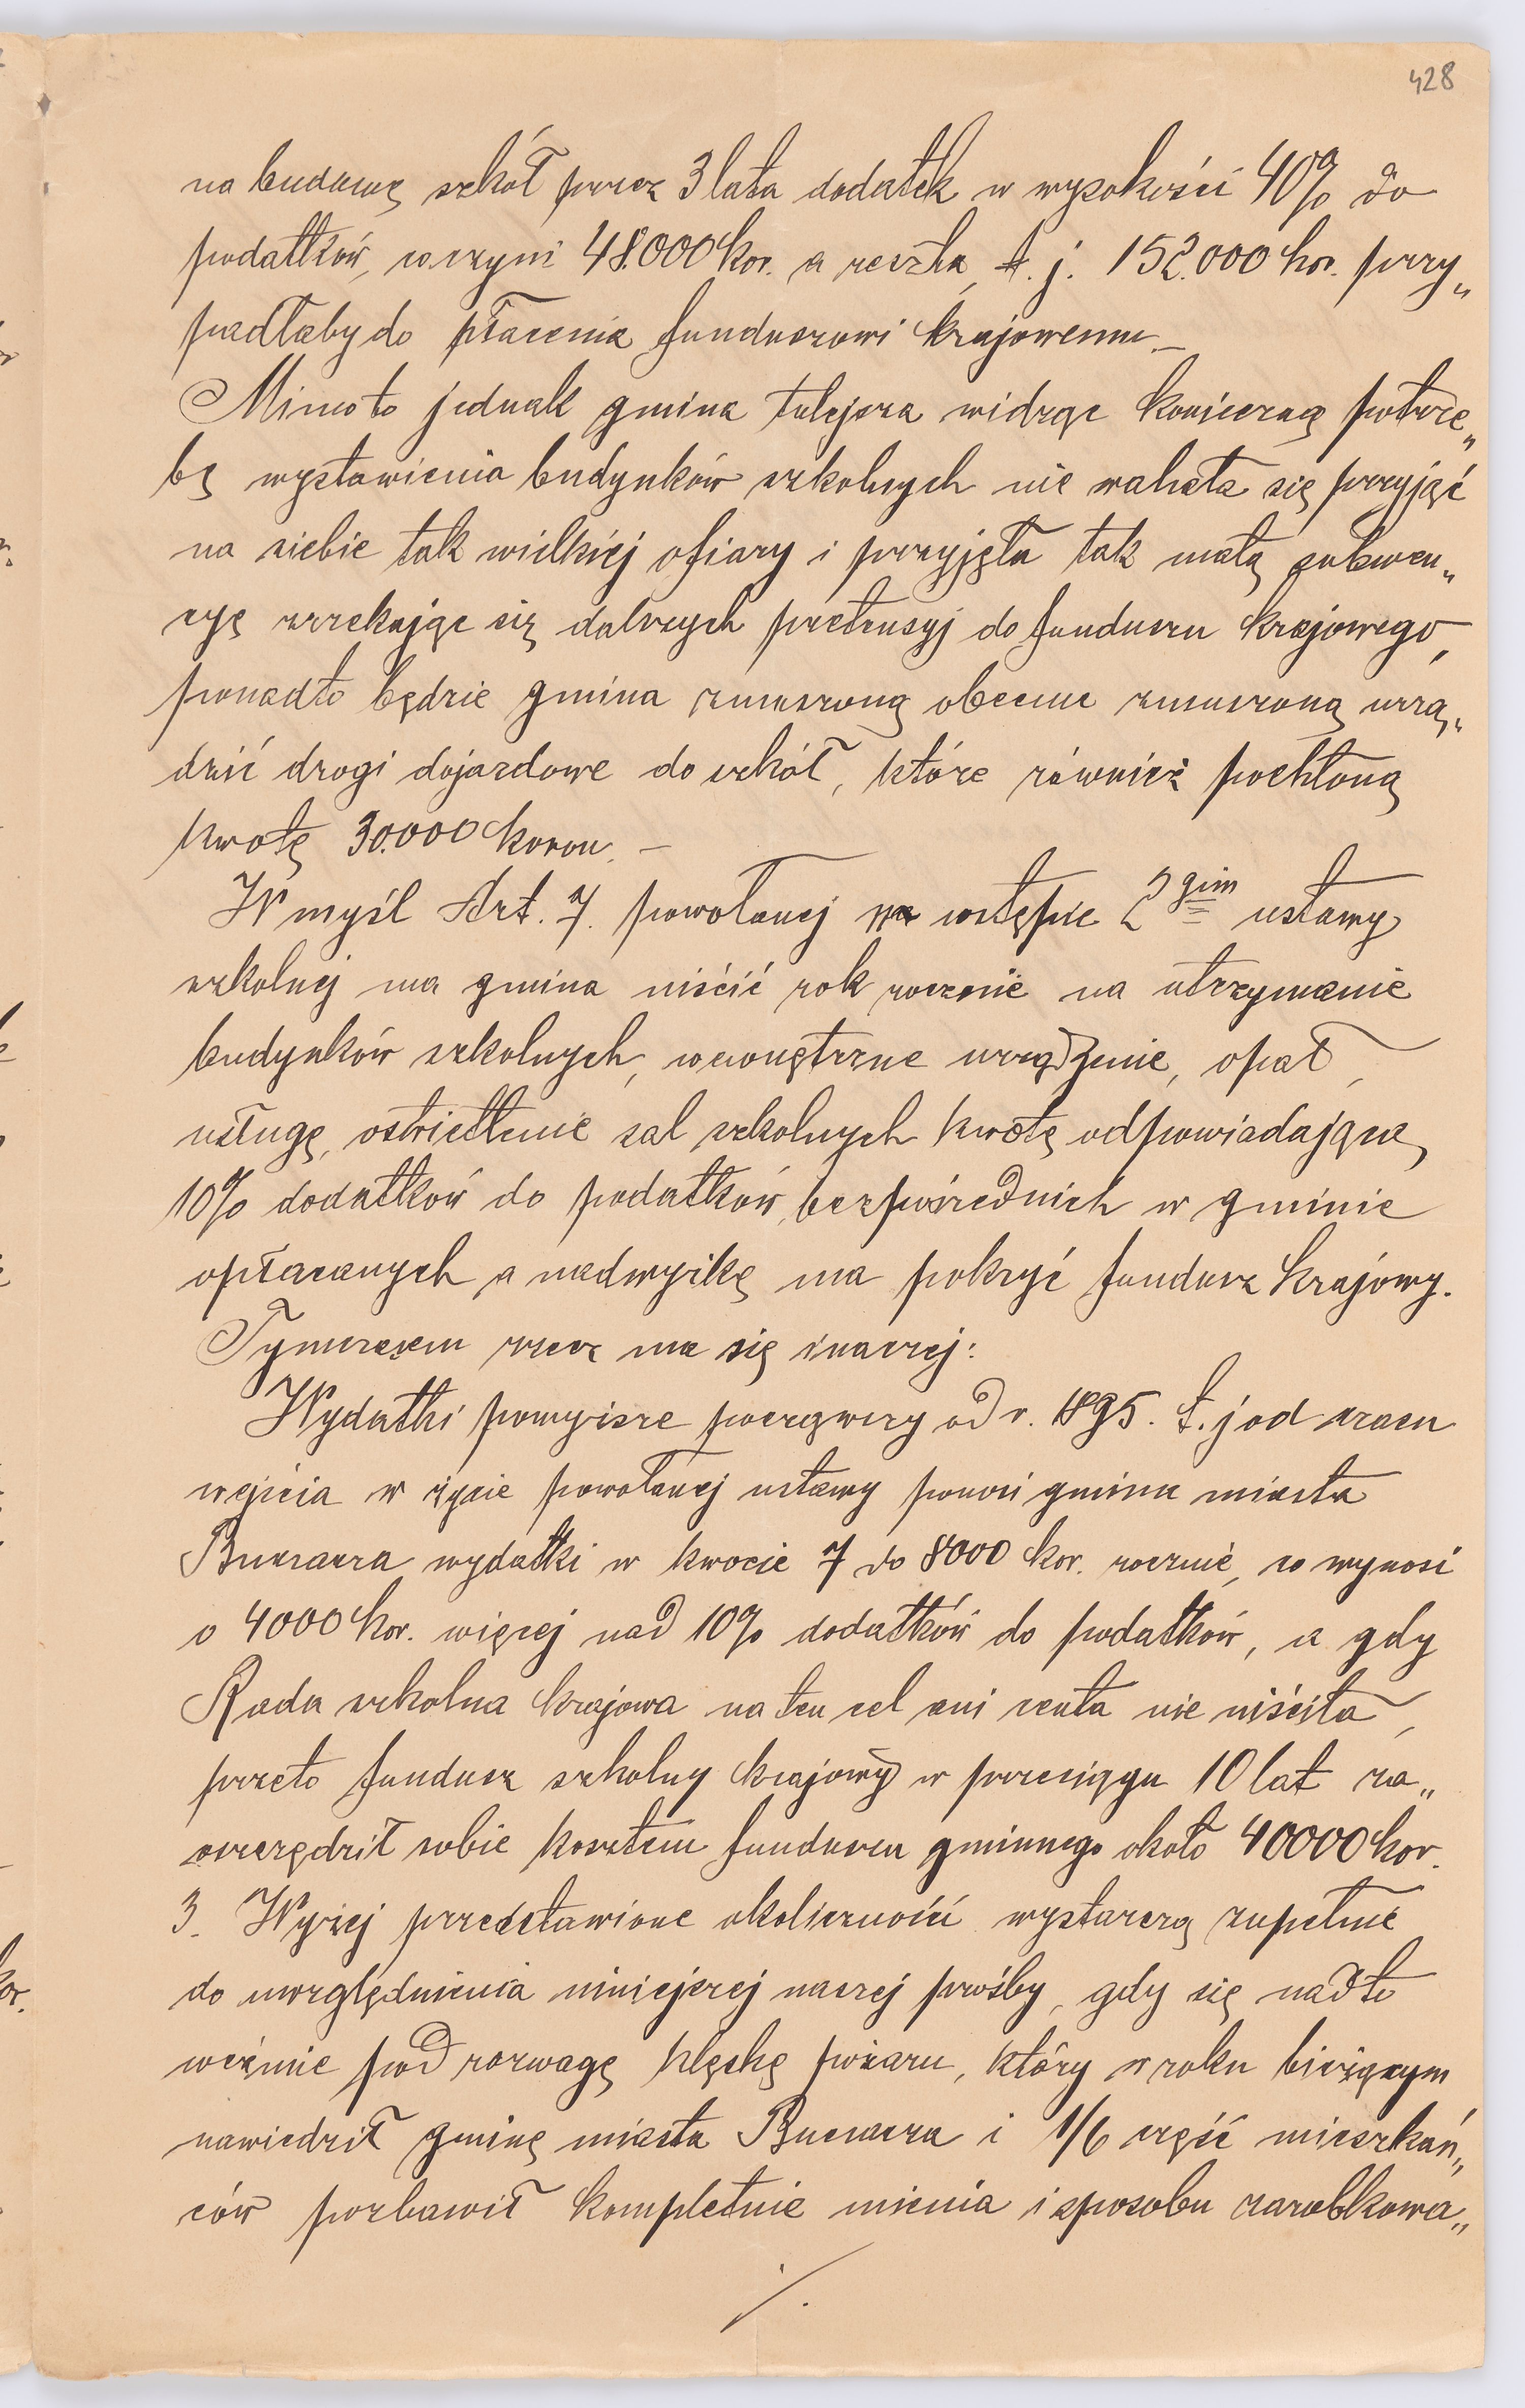 428
na budowę szkół przez 3 lata dodatek w wysokości 40% do
podatków, co czyni 48.000 kor. a reszta, t. j. 152.000 kor. przy„
padłaby do płacenia funduszowi krajowemu. –
Mimo to jednak gmina tutejsza widząc konieczną potrze„
bę wystawienia budynków szkolnych nie wahała się przyjąć
na siebie tak wielkiej ofiary i przyjęła tak małą subwen„
cyę zrzekając się dalszych pretensyj do funduszu krajowego,
ponadto będzie gmina zmuszoną obecnie zmuszoną urzą„
dzić drogi dojazdowe do szkół, które również pochłoną
kwotę 30.000 koron. –
W myśl Art. 7. powołanej na wstępie 2gim ustawy
szkolnej ma gmina uiścić rok rocznie na utrzymanie
budynków szkolnych, wewnętrzne urządzenie, opał,
usługę, oświetlenie sal szkolnych kwotę odpowiadającą
10% dodatków do podatków bezpośrednich w gminie
opłacanych a nadwyżkę ma pokryć fundusz krajowy.
Tymczasem rzecz ma się inaczej:
Wydatki powyższe począwszy od r. 1895. t. j od czasu
wejścia w życie powołanej ustawy ponosi gmina miasta
Buczacza wydatki w kwocie 7 do 8000 kor. rocznie, co wynosi
o 4000 kor. więcej nad 10% dodatków do podatków, a gdy
Rada szkolna krajowa na ten cel ani centa nie uiściła,
przeto fundusz szkolny krajowy w przeciągu 10 lat za„
oszczędził sobie kosztem funduszu gminnego około 40000 kor.
3. Wyżej przedstawione okoliczności wystarczą zupełnie
do uwzględnienia niniejszej naszej prośby, gdy się nadto
weźmie pod rozwagę klęskę pożaru, który w roku bieżącym
nawiedził gminę miasta Buczacza i 1/6 część mieszkań„
ców pozbawił kompletnie mienia i sposobu zarobkowa„
./.